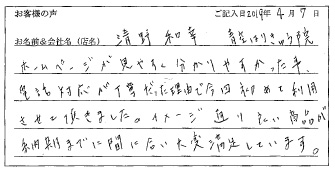 お客様の声 ご記入日2019年 4月 7日
お名前&会社名(店名) 清野和幸 はりきゅう院
ホームページが見やすく分かりやすかった事、
電話対応が丁寧だった理由で今回初めて利用
させて頂きました。イメージ通りの商品が
納期までに間に合い大変満足しています。